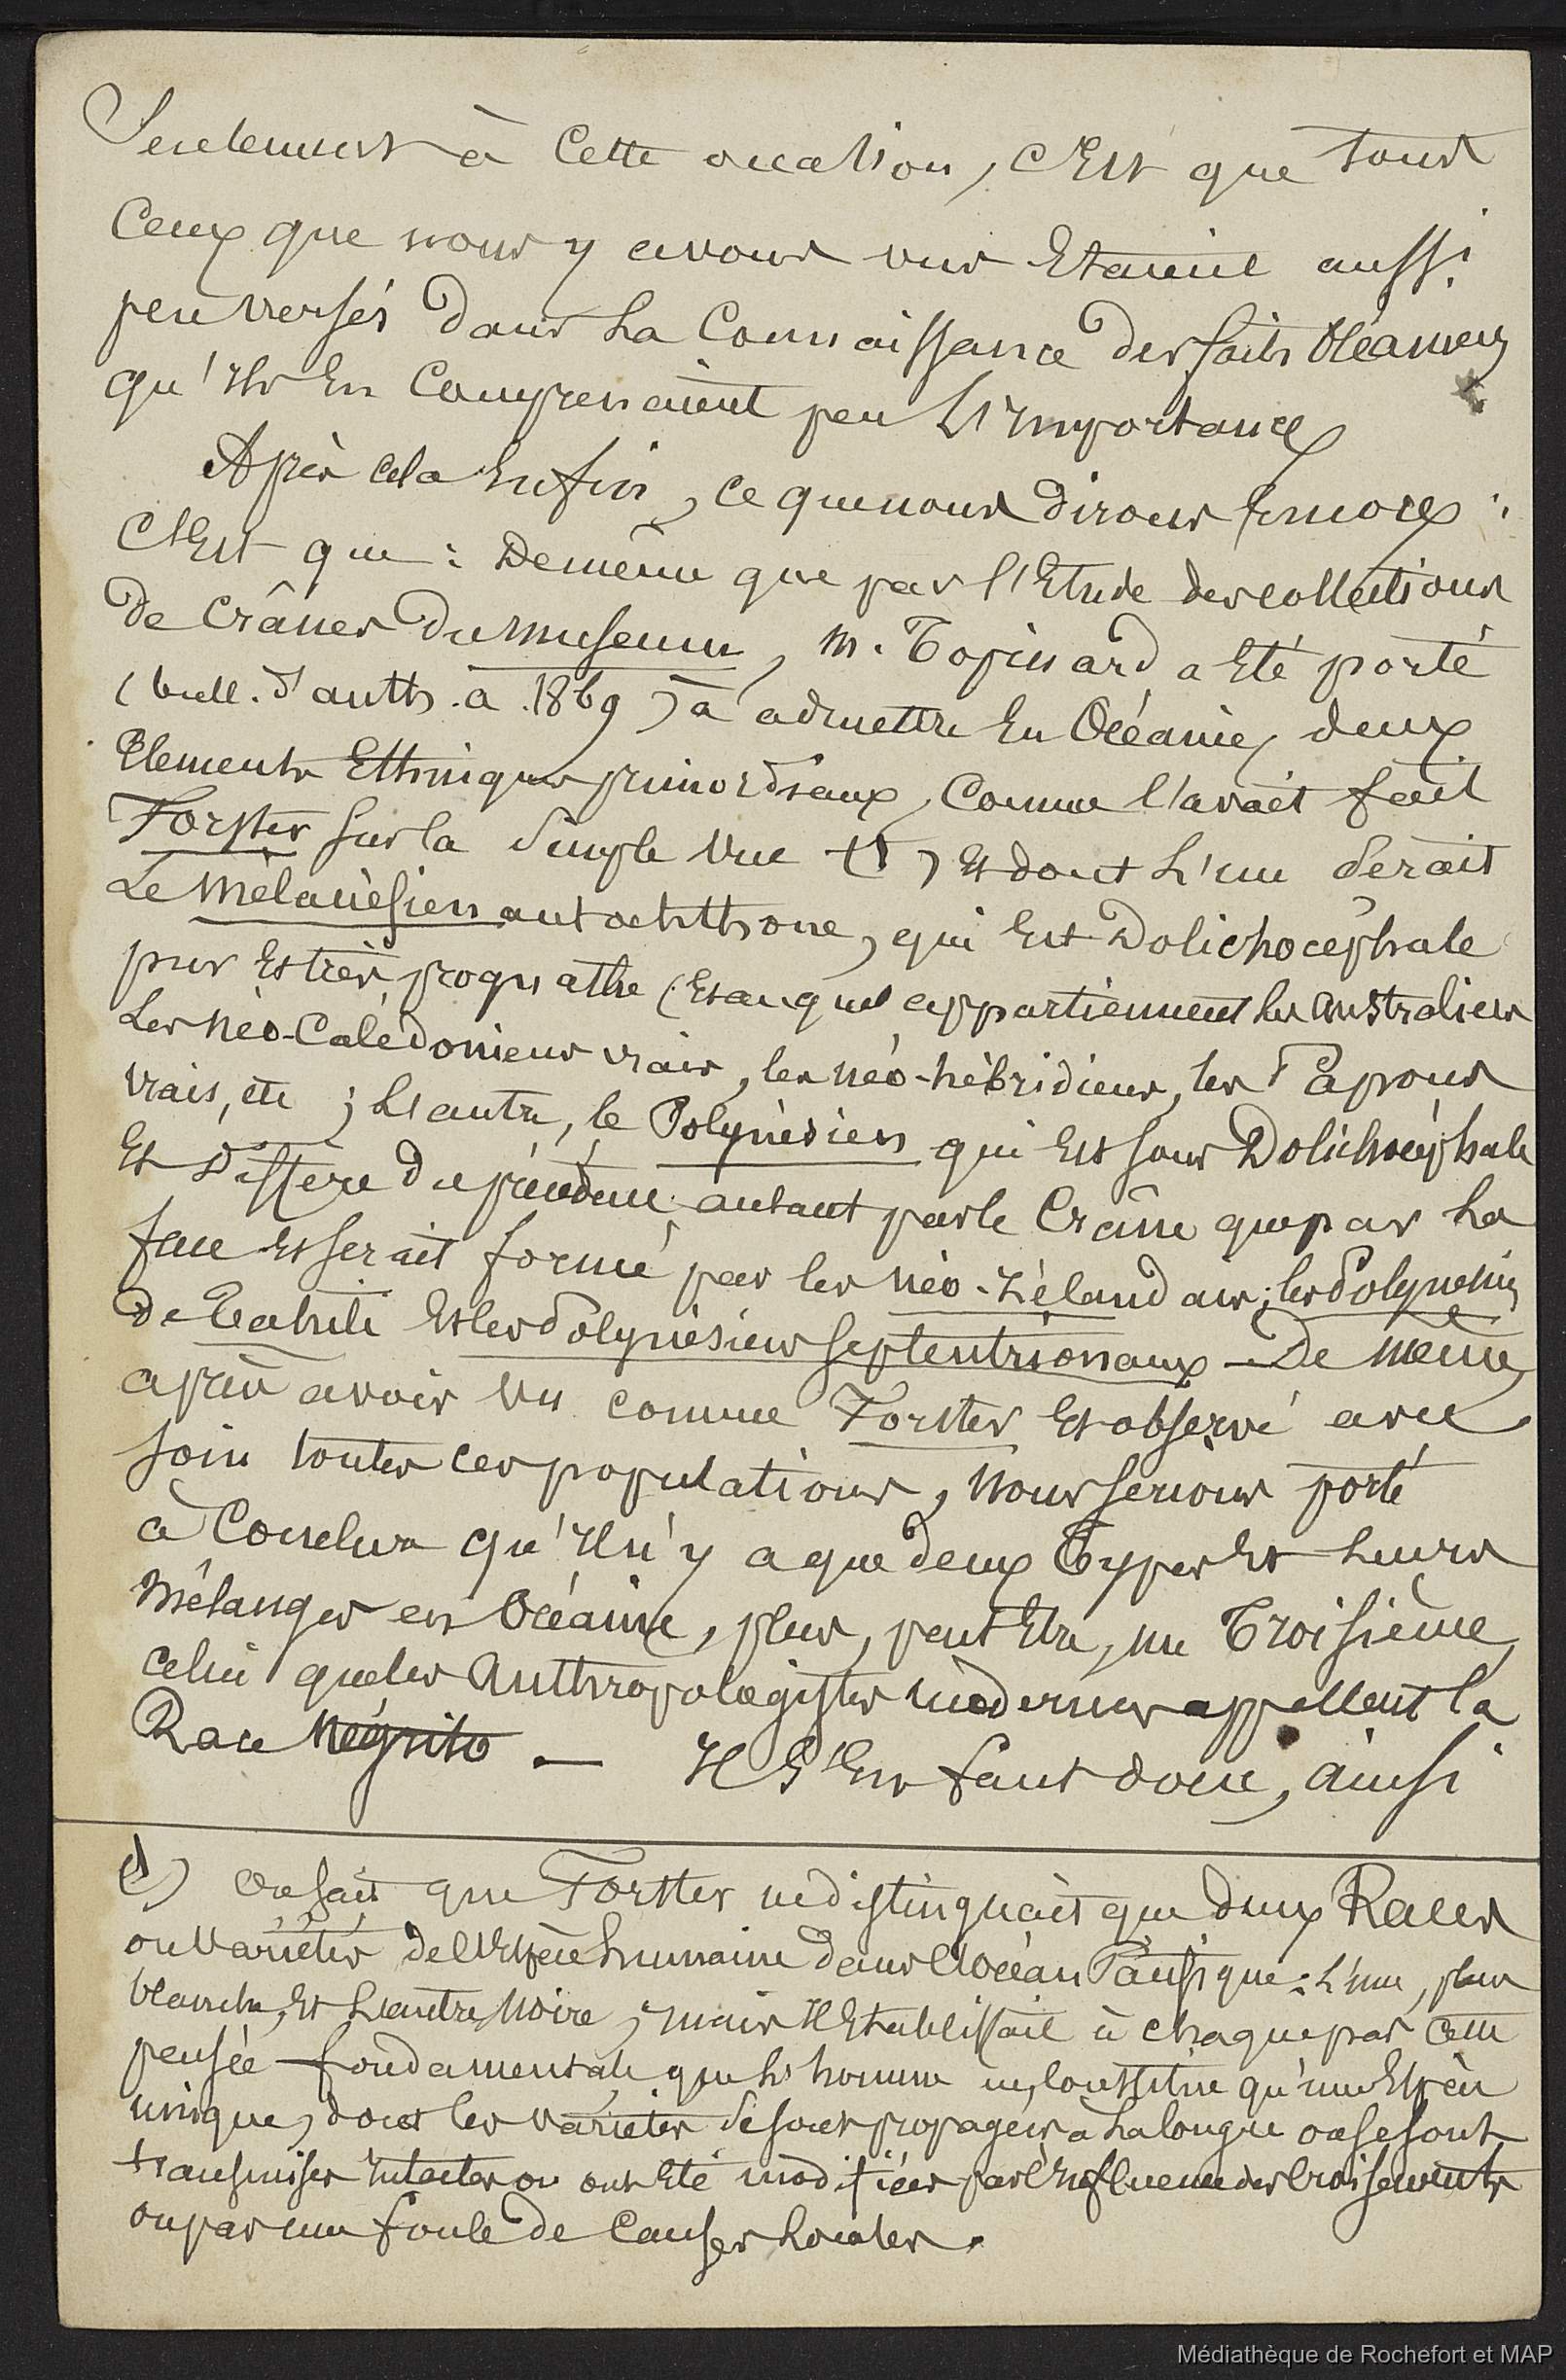 Seulement à cette occasion, c'Est que tous
Ceux que nous y avons vus Etaient aussi
peu versés dans La Connaissance des faits Océaniens
qu'Ils En Comprenaient peu L'Importance
Après cela Enfin, ce que nous dirons Encore :
C'Est que : De même que par l'Etude des collections
de Crânes du Museum, M. Topinard a Eté porté
(bull. d'anth. a. 1869) à admettre En Océanie, deux
Elements Ethniques primordiaux, Comme l'avait fait
Forster sur la Simple Vue (1) Et dont L'un Serait
Le Mélanésien autochthone, qui Est Dolichocéphale
pur Et très prognathe (Et auquel appartiennent les Australiens
Les Néo-Calédoniens vrais, les Néo-hébridiens, les Papous
vrais, etc ; L'autre, le Polynésien qui Est sous Dolichocéphale
Et Diffère du précédent autant par le Crâne que par La
face Et serait formé par les Néo-Zélandais ; les Polynésiens
de Tahiti Et les Polynésiens septentrionaux - De même,
après avoir Vu comme Forster Et observé avec
soin toutes ces populations, Nous serions porté
à Conclure qu'Il n'y a que deux Types Et Leurs
Mélanges en Océanie, plus, peut Etre, un Troisième,
celui que les Anthropologistes modernes appellent la
Race Négrito — Il S'En faut donc, ainsi
1) On sait que Forster ne distinguait que deux Races
ou Variétés de l'Espèce humaine dans l'Océan Pacifique : L'une, plus
blanche, Et L'autre, Noire ; mais Il Etablissait à chaque pas cette
pensée fondamentale que L'homme ne constitue qu'une Espèce
unique, dont les variétés se sont propagées à La longue ou se sont
transmises Intactes ou ont Eté modifiées par l'Influence des Croisements
ou par une foule de Causes Locales.
Médiathèque de Rochefort et MAP